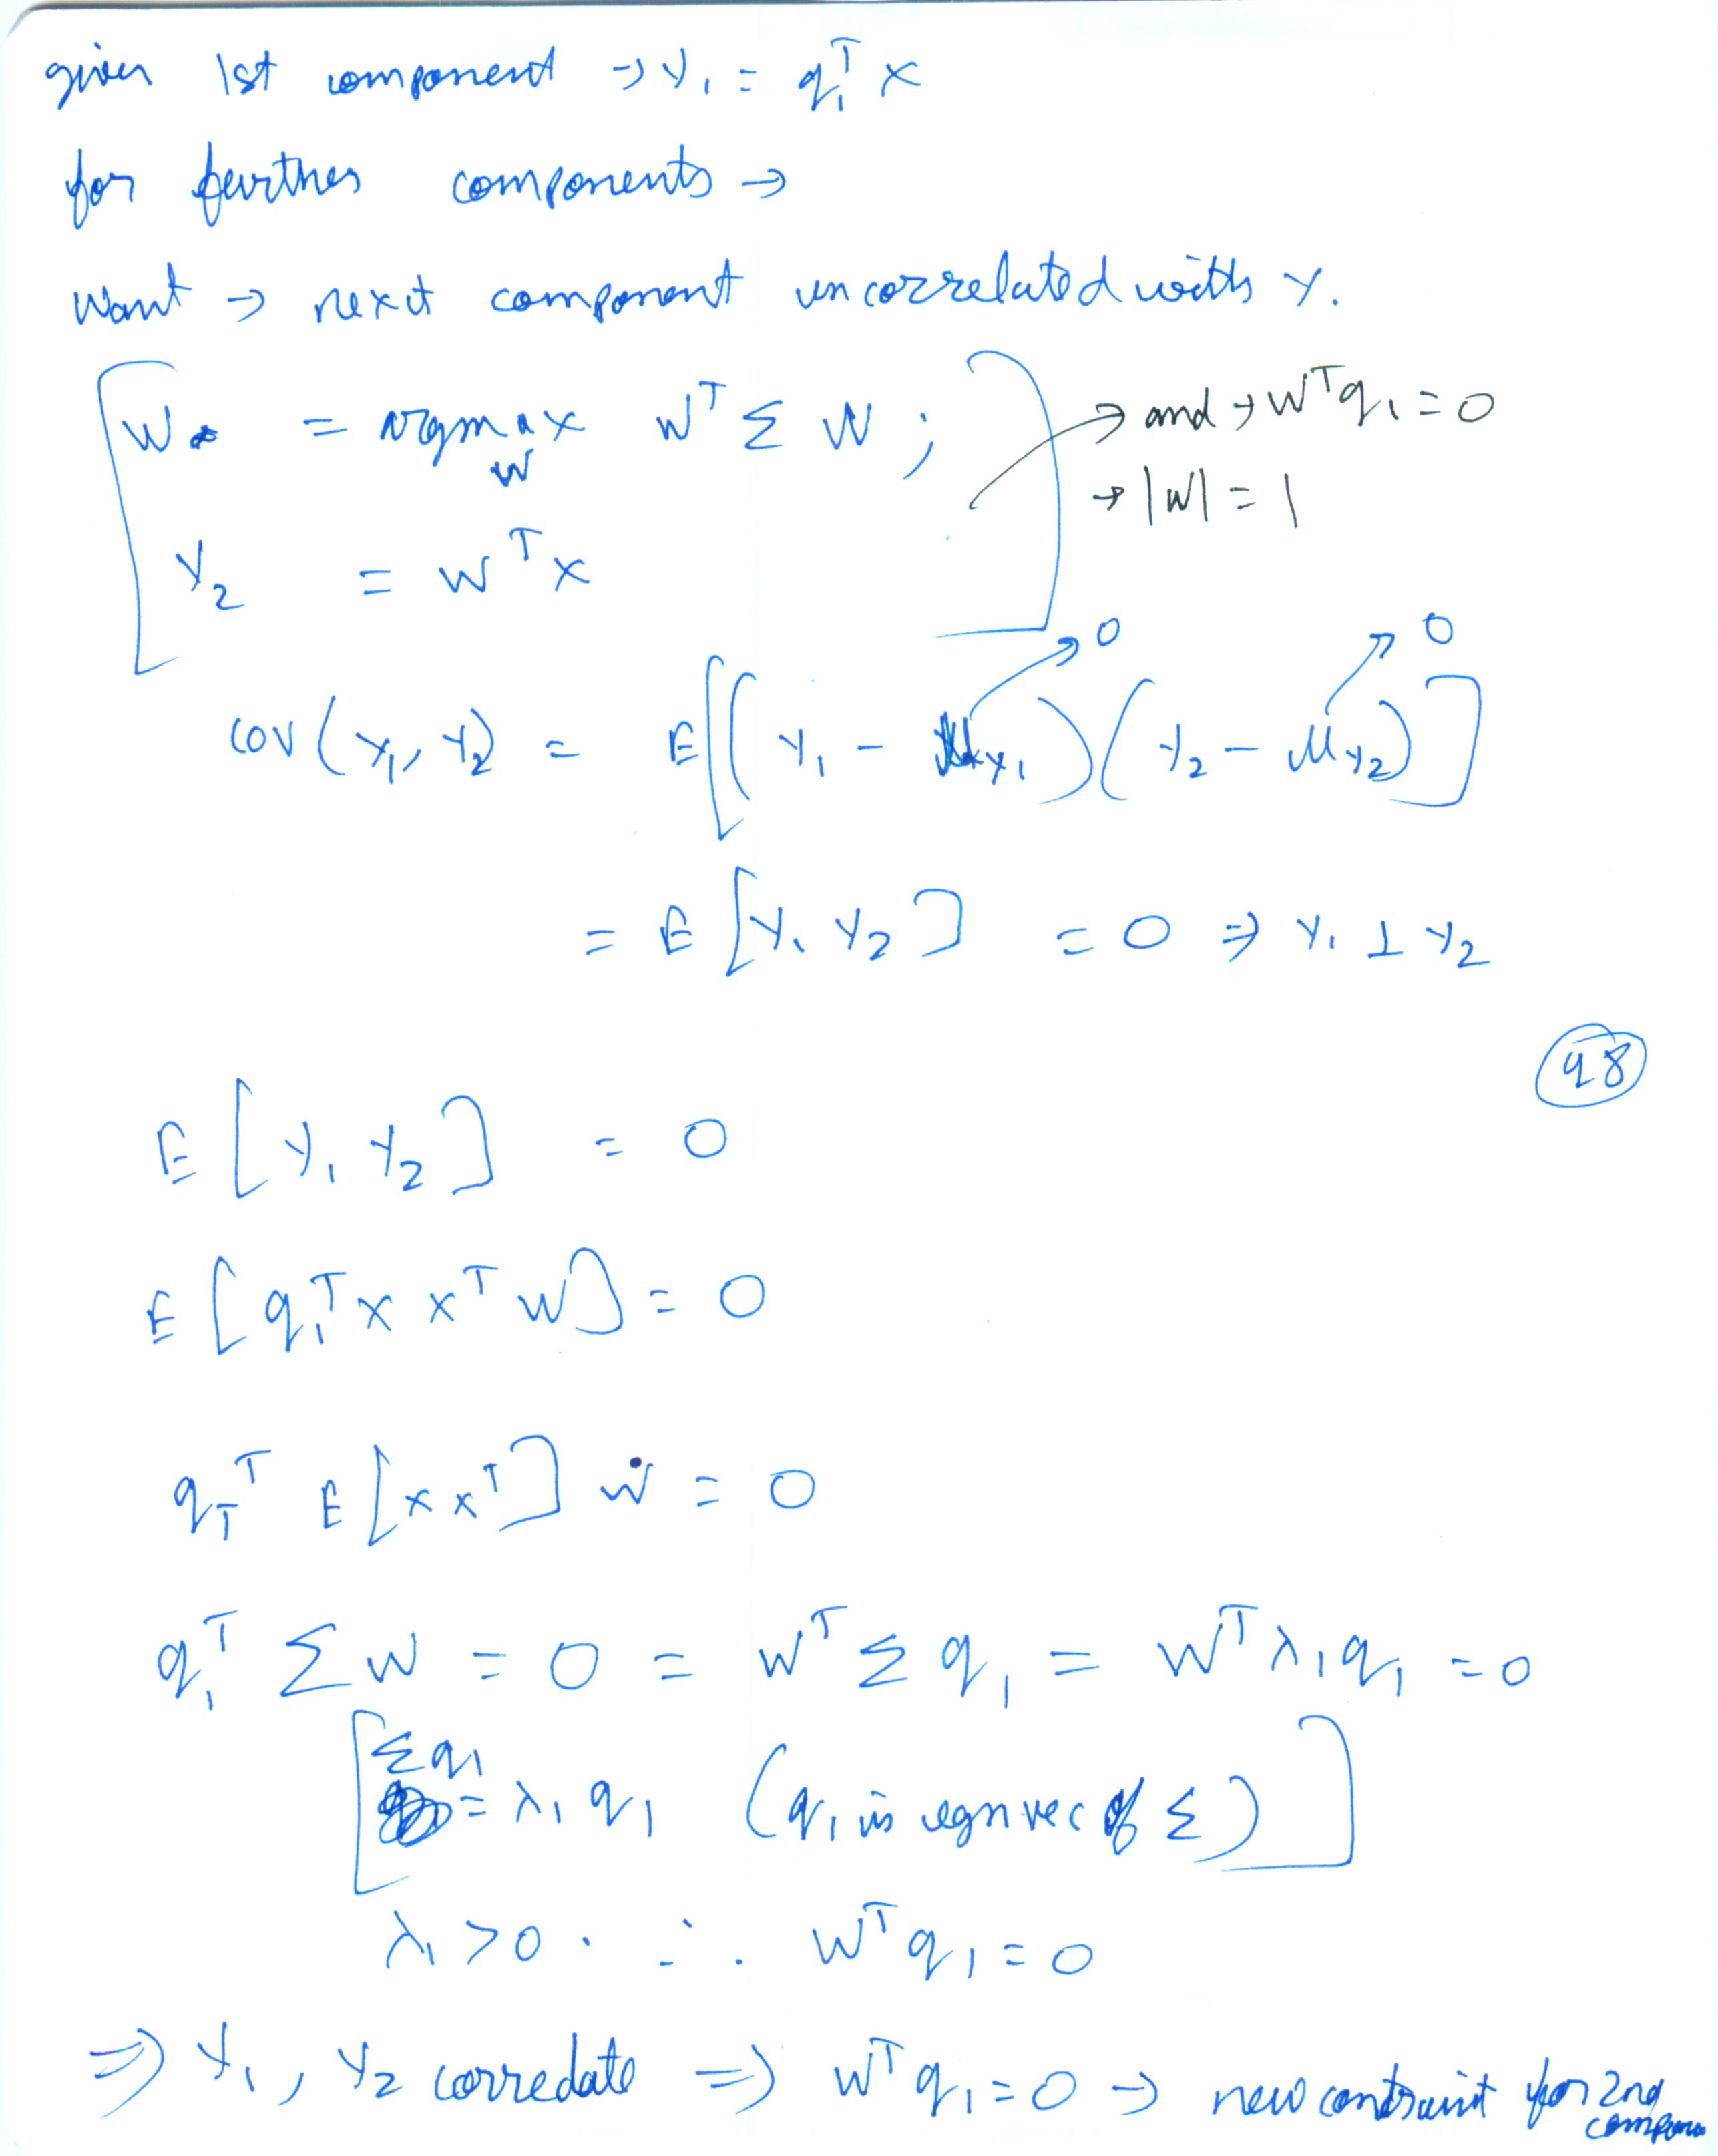 given 1st component → y₁ = q₁ᵀ x
for further components →
want → next component uncorrelated with y.
w* = argmax_w wᵀ Σ w ; → and → wᵀq₁ = 0
→ |w| = 1
y₂ = wᵀx
cov(y₁, y₂) = E[(y₁ − μy₁)(y₂ − μy₂)] → 0 → 0
= E[y₁ y₂] = 0 ⇒ y₁ ⊥ y₂
98
E[y₁ y₂] = 0
E[q₁ᵀ x xᵀ w] = 0
q₁ᵀ E[x xᵀ] w = 0
q₁ᵀ Σ w = 0 = wᵀ Σ q₁ = wᵀ λ₁ q₁ = 0
[Σq₁ = λ₁ q₁ (q₁ is egnvec of Σ)]
λ₁ > 0 . ∴ wᵀ q₁ = 0
⇒ y₁, y₂ corredate ⇒ wᵀ q₁ = 0 → new contsraint for 2nd